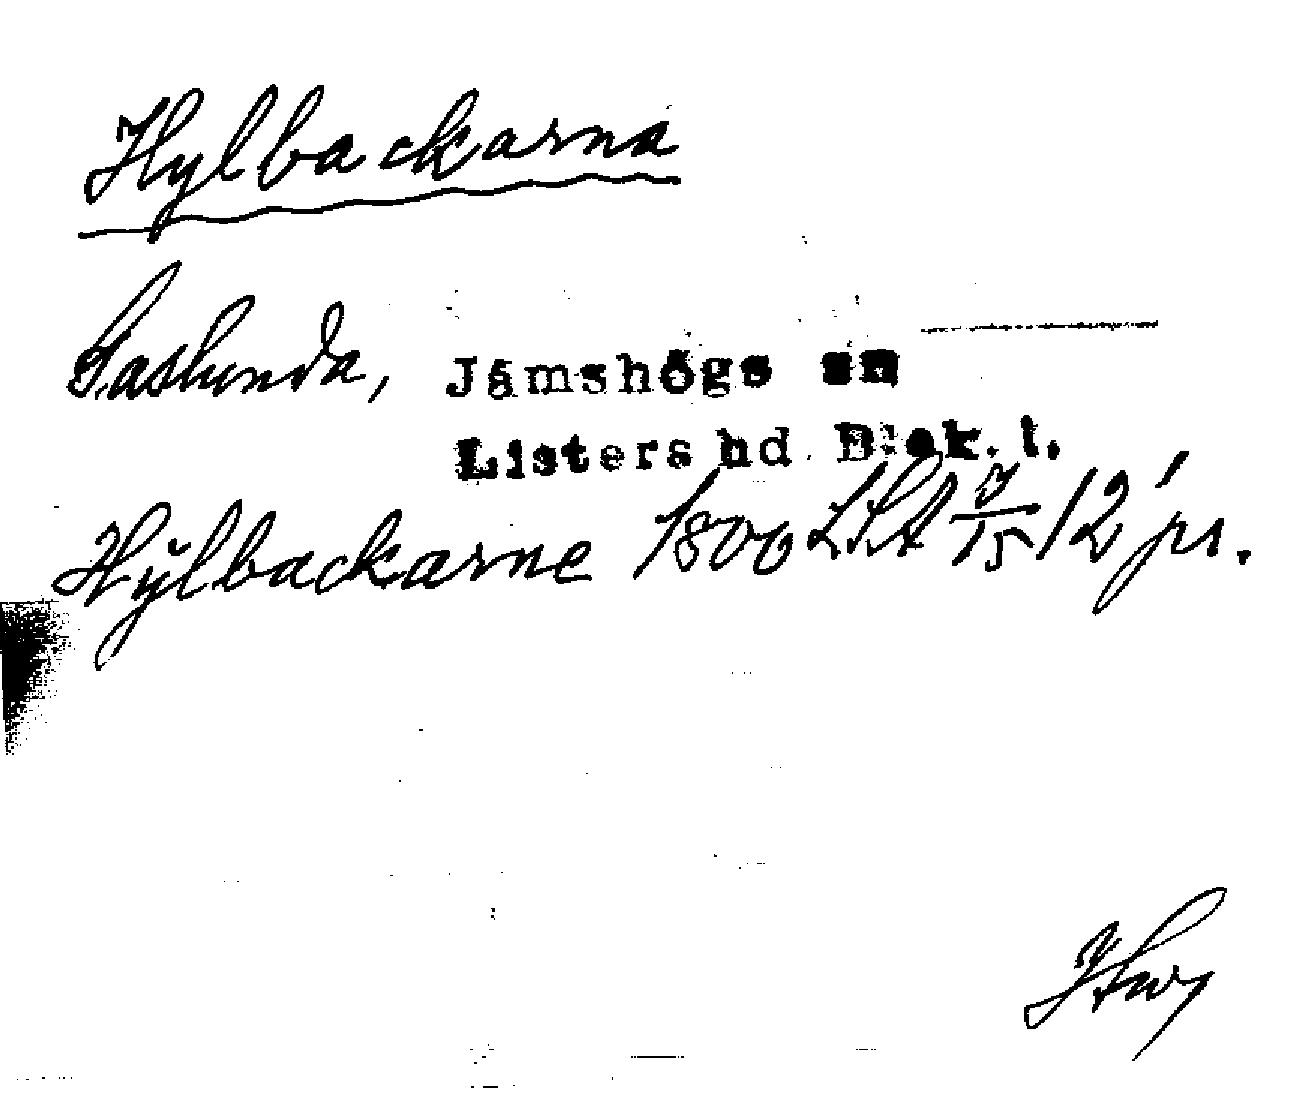 Hylbackarna
Gaslunda, Jämshögs sn
Listers hd Blek. l.
Hÿlbackarne 1800 LSA J/15 12' pr.